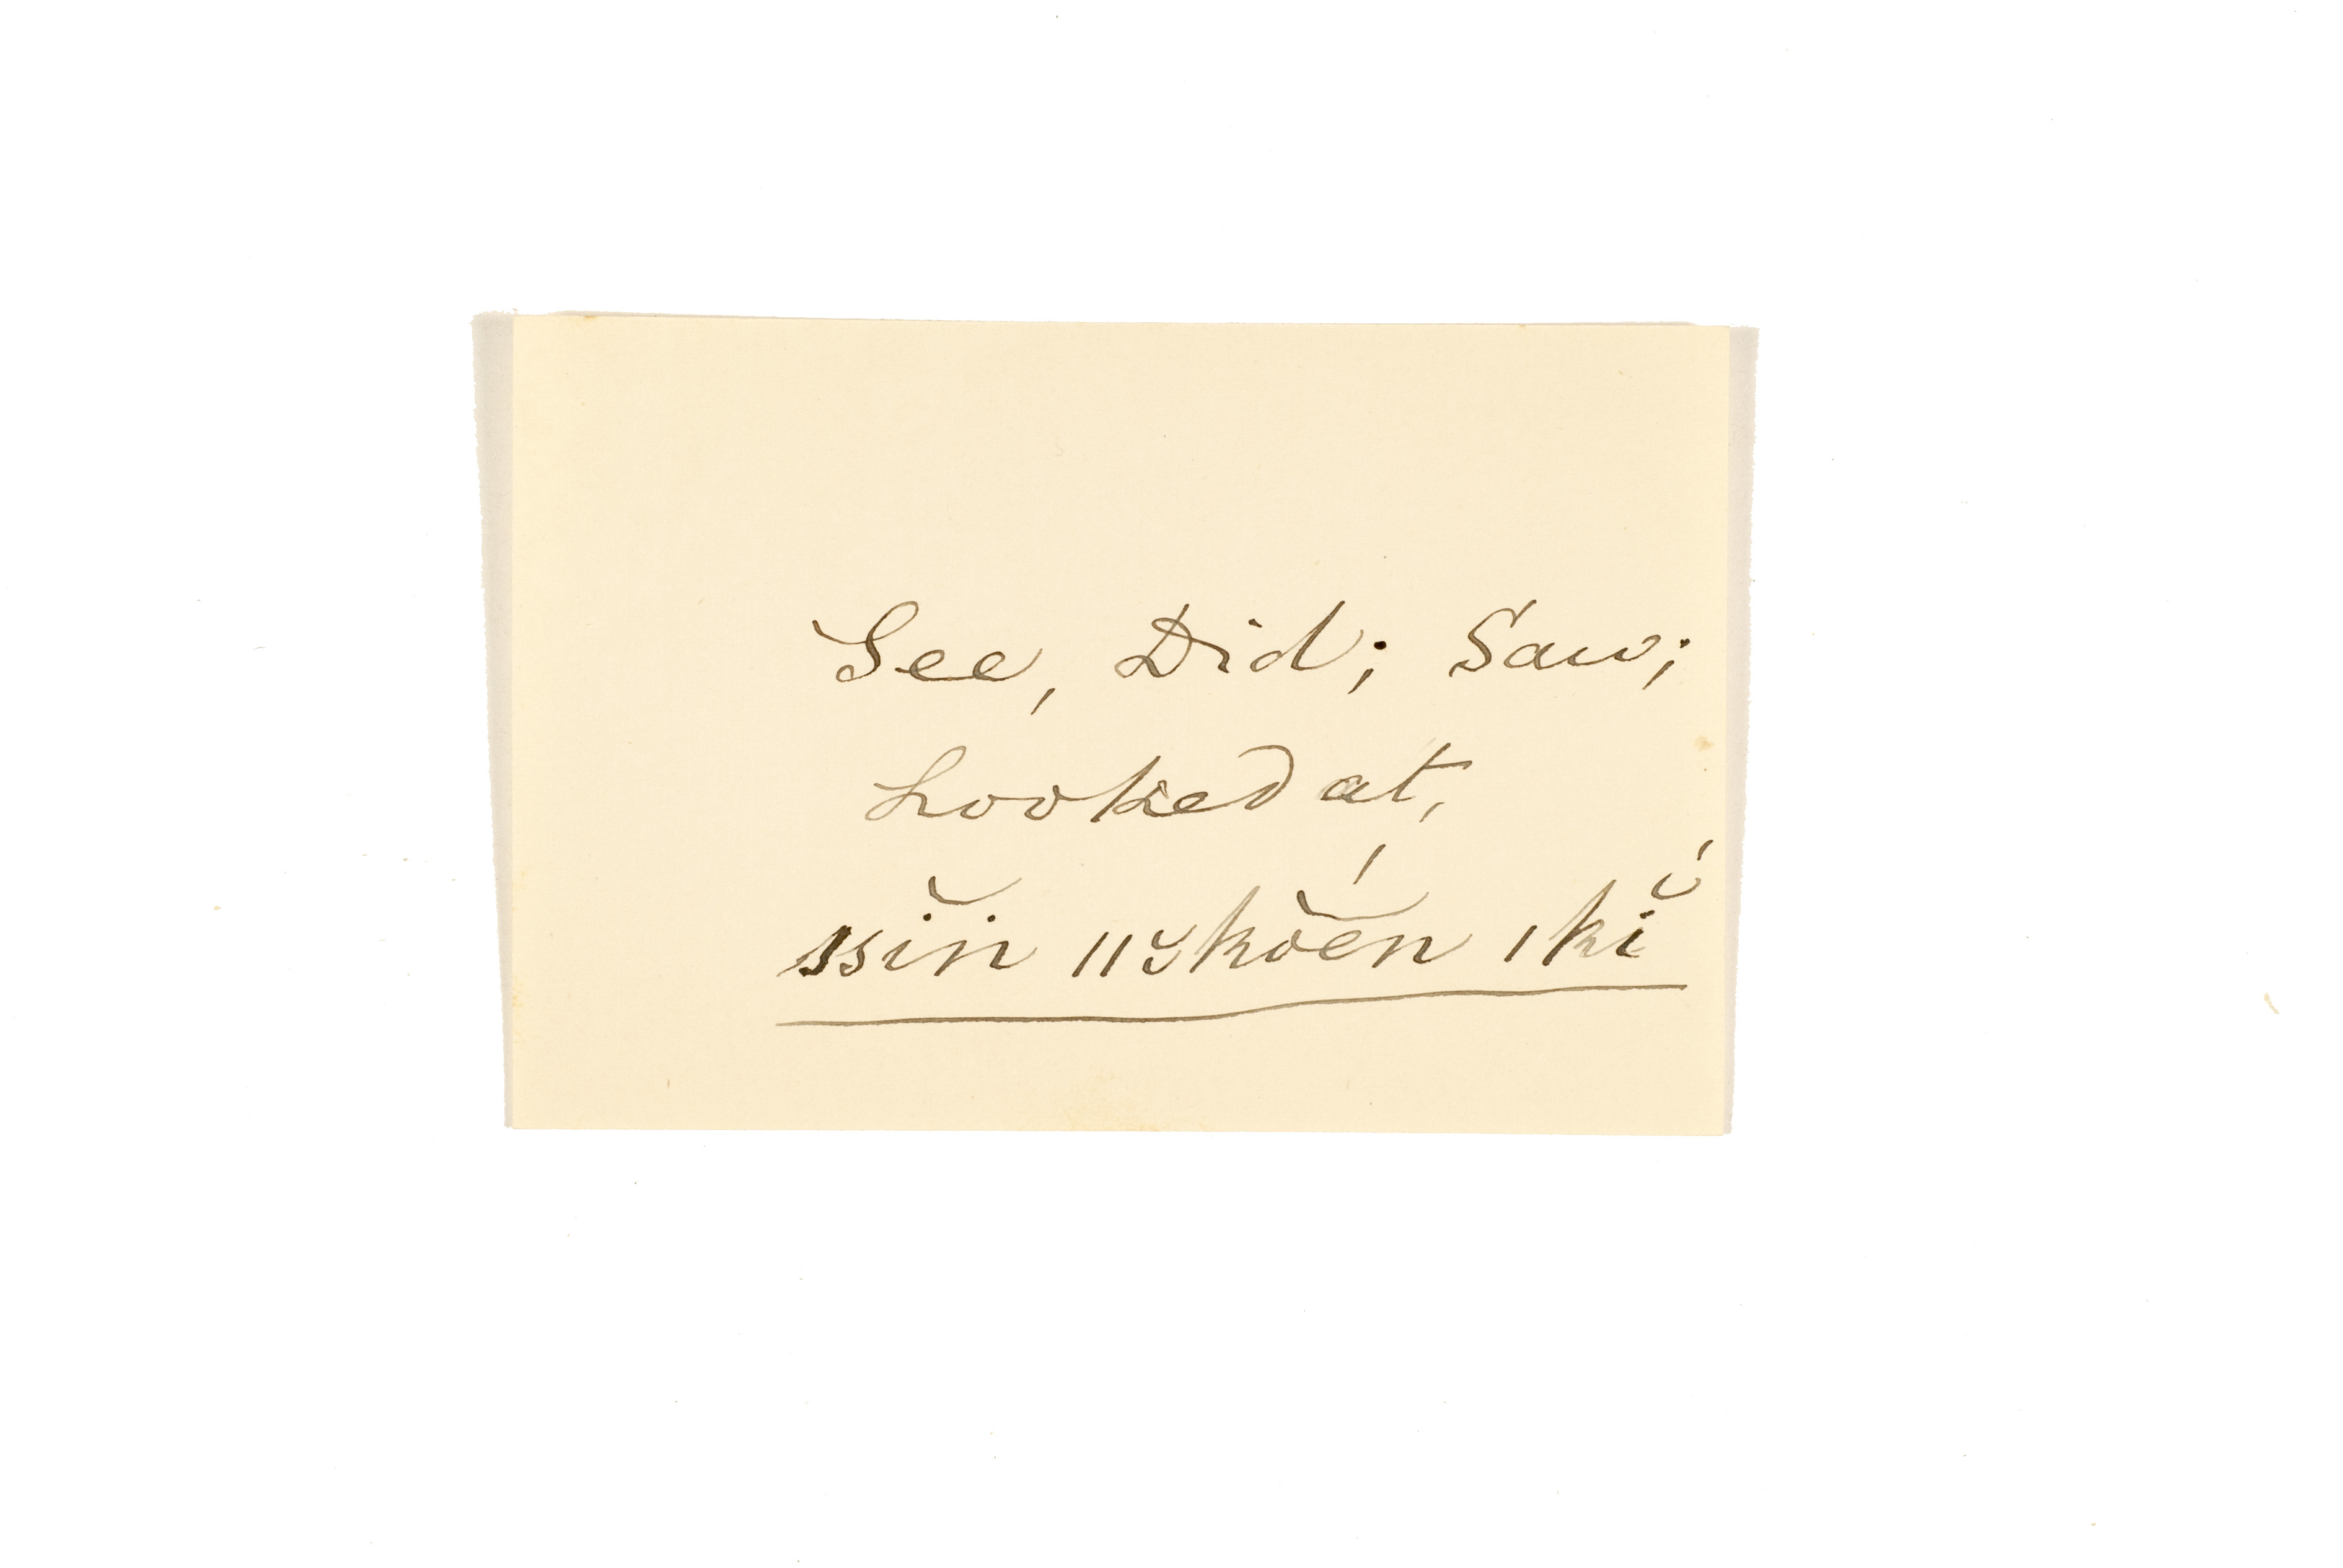 See, Did; Saw;
Looked at,
ssĭn ııŭkŏĕ́n ıkĭ́